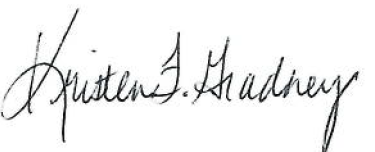 Kristen F. Gradney